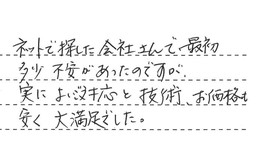 ネットで探した会社さんで最初
多少不安があったのですが、
実によい対応と技術、お価格も
安く大満足でした。